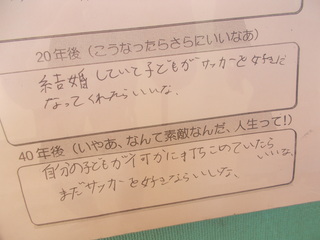 20年後（こうなったらさらにいいなあ）
結婚していて子どもがサッカーを好きに
なってくれたらいいな.
40年後（いやあ、なんて素敵なんだ、人生って！）
自分の子どもが何かに打ちこめていたら
いいな.
まだサッカーを好きならいいな.